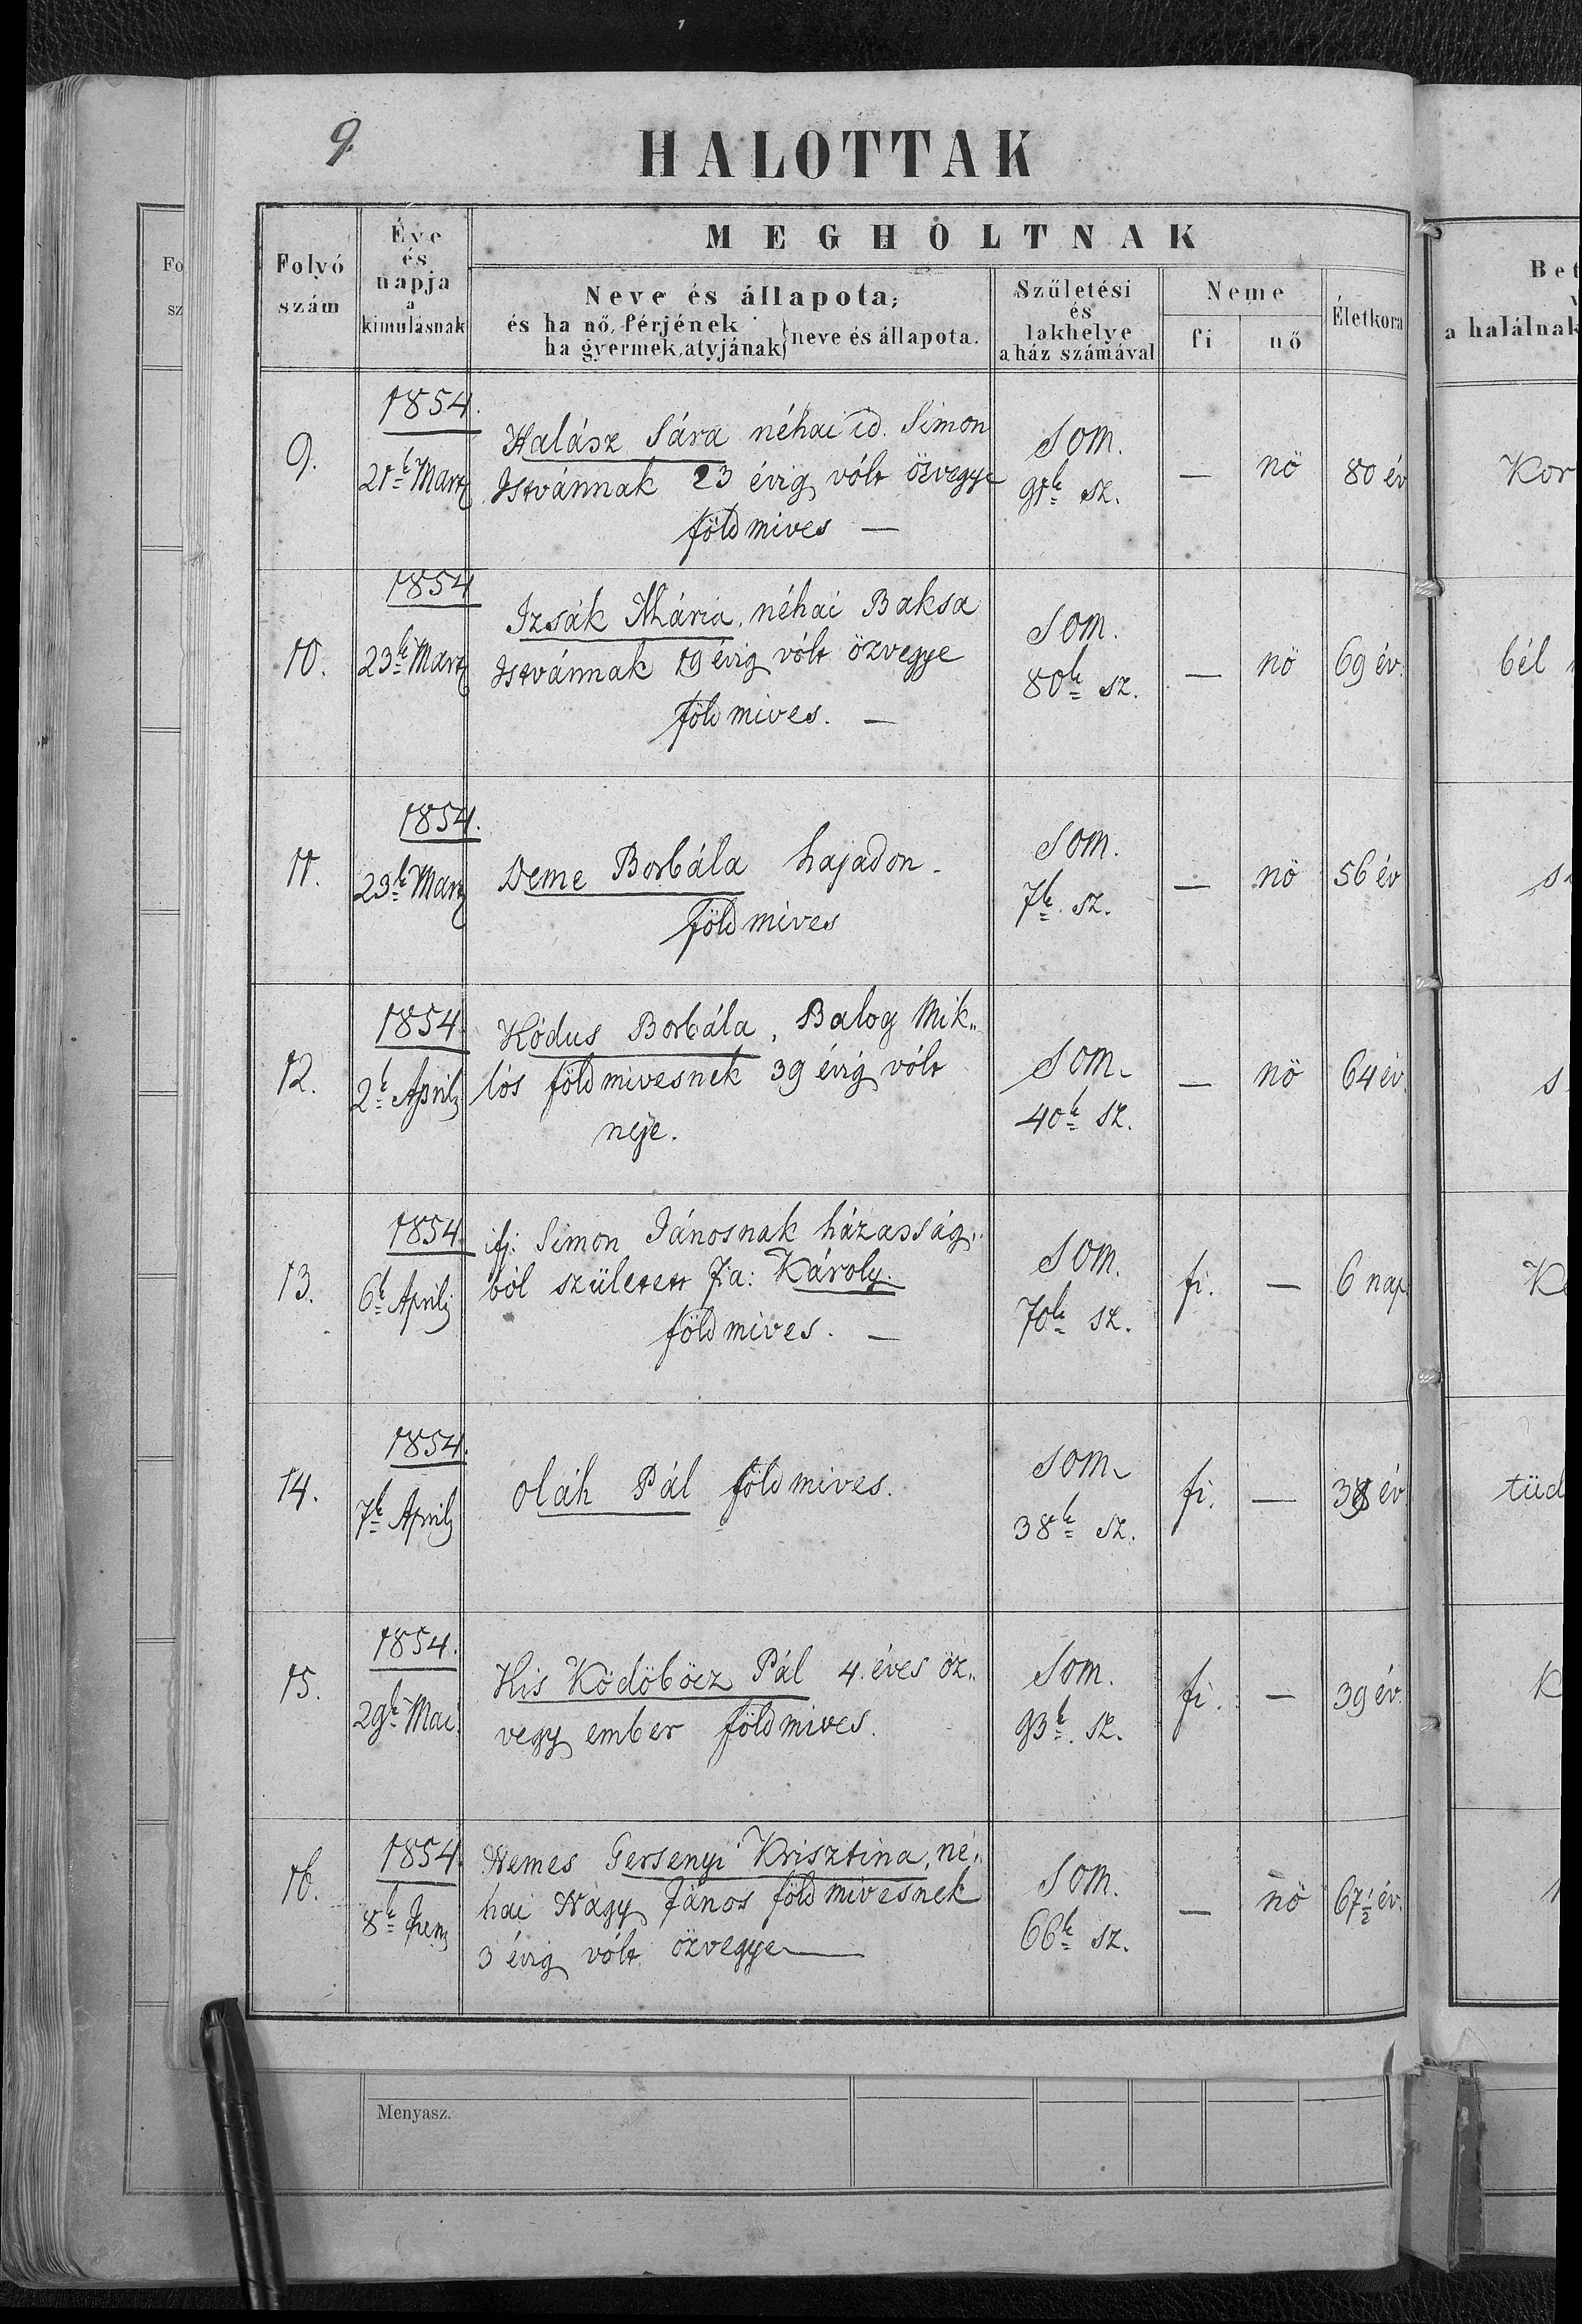 9.
HALOTTAK
Folyó szám
Éve és napja a kimulásnak
MEGHOLTNAK
Neve és állapota,
és ha nő, férjének
ha gyermek, atyjának} neve és állapota.
Születési és lakhelye a ház számával
Neme
fi
nő
Életkora
Bet
a halálnak
Fo
sz
9.
1854.
21k Martz
Halász Sára néhai id. Simon
Istvánnak 23 évig vólt özvegye
földmives —
Som.
91k sz.
—
nö
80 év
Kor
10.
1854
23k Martz
Izsák Mária, néhai Baksa
Istvánnak 19 évig vólt özvegye
földmives. —
Som.
80k sz.
—
nö
69 év.
bél
11.
1854.
23k Martz
Deme Borbála hajadon.
földmives
Som.
7k sz.
—
nö
56 év
12.
1854.
2k April
Ködus Borbála, Balog Mik„
lós földmivesnek 39 évig vólt
neje.
Som.
40k sz.
—
nö
64 év.
s
13.
1854.
6k April
ifj. Simon Jánosnak házasság„
ból született fia: Károly.
földmives. —
Som.
70k sz.
fi.
—
6 nap
14.
1854.
7k April
Oláh Pál földmives.
Som.
38k sz.
fi.
—
38 év
tüd
15.
1854.
29k Mai.
Kis Ködöböcz Pál 4. éves öz„
vegy ember földmives.
Som.
93k. sz.
fi.
—
39 év.
K
16.
1854.
8k Jun
Nemes Gersenyi Krisztina, né„
hai Nagy János földmivesnek
3 évig vólt özvegye —
Som.
66k sz.
—
nö
67 1/2 év.
Menyasz.